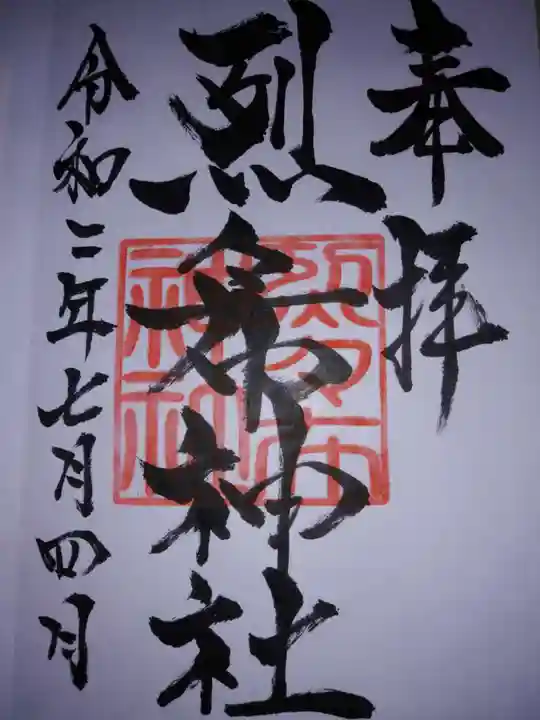 奉拝
烈々布神社
令和二年七月四日
烈々布
神社